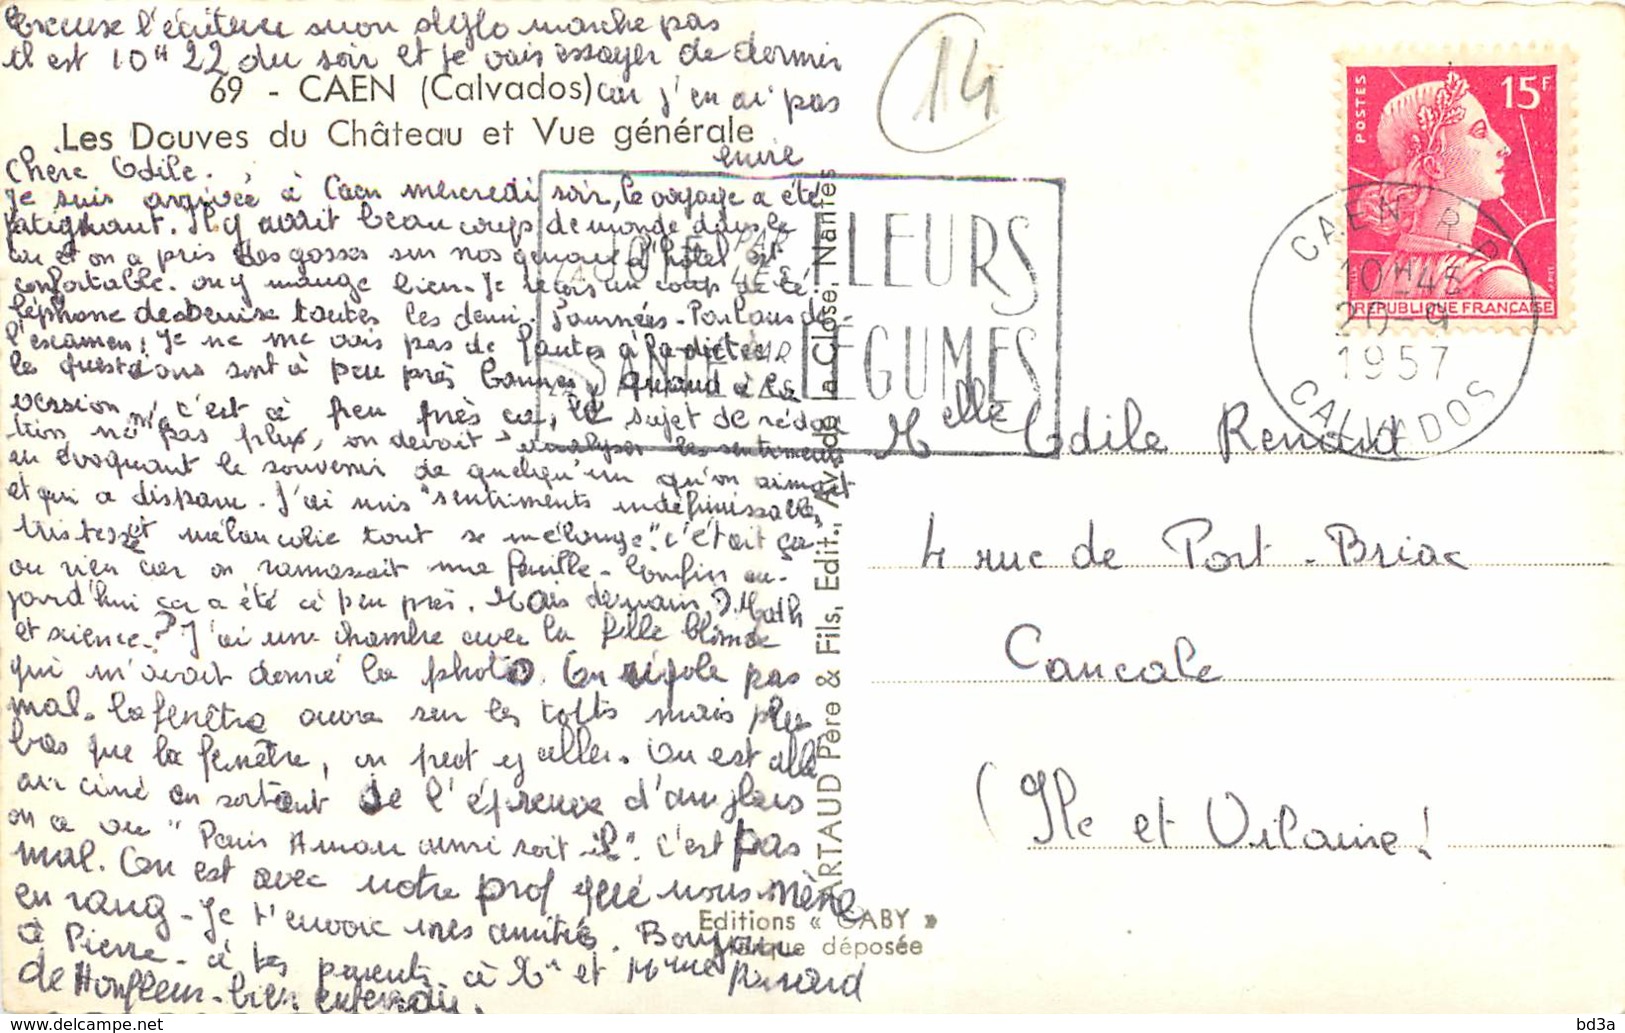 Excuse l'écriture mon stylo marche pas
il est 10H 22 du soir et je vais essayer de dormir
69 - CAEN (Calvados) car j'en ai pas
Les Douves du Château et Vue générale
envie
Chère Odile.
Je suis arrivée à Caen mercredi soir, le voyage a été
fatiguant. Il y avait beaucoup de monde dans le
car et on a pris des gosses sur nos genoux l'hôtel est
confortable. on y mange bien. Je reçois un coup de té-
léphone de Denise toutes les demi-journées. Parlons de
l'examen; Je ne me vois pas de fautes à la dictée
les questions sont à peu près bonnes, quand à la
version, c'est à peu près ça, le sujet de rédac
tion n'est pas plus, on devait analyser les sentiments
en évoquant le souvenir de quelqu'un qu'on aimait
et qui a disparu. J'ai mis "sentiments indéfinissable,
tristesse et mélancolie tout se mélange". c'était ça
ou rien car on ramassait une feuille. Comfin au-
jourd'hui ça a été à peu près. Mais demain? Math
et science? J'ai une chambre avec la fille blonde
qui m'avait donné la photo. On rigole pas
mal. la fenêtre ouvre sur les toits mais plus
bas que la fenêtre, on peut y aller. On est allé
au ciné en sortant de l'épreuve d'anglais
on a vu "Paris Amour ainsi soit il". C'est pas
mal. On est avec notre prof elle nous mène
en rang. Je t'envoie mes amitiés. Bonjour
à Pierre - à tes parents à Mr et Mme Renard
de Honfleur. bien entendu.
14
POSTES
15F
REPUBLIQUE FRANCAISE
CAEN R.P.
10H-45
20-9
1957
CALVADOS
JOIE PAR LES FLEURS
SANTÉ PAR LES LÉGUMES
Melle Odile Renard
4 rue de Port-Briac
Cancale
(Ile et Vilaine!
ARTAUD Père & Fils, Edit., Av. de La Close, Nantes
Editions « GABY »
Marque déposée
bd3a